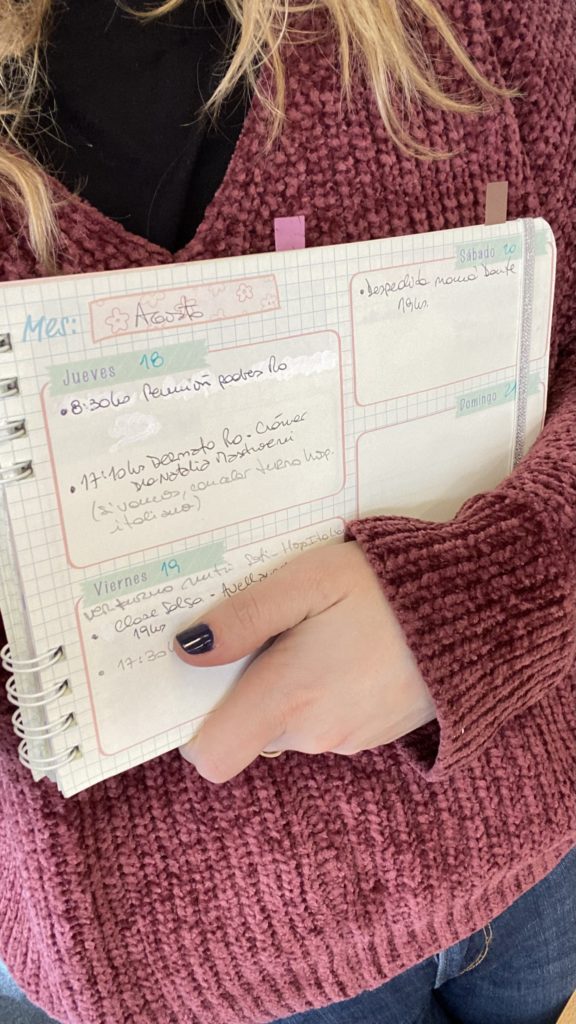 Mes: Agosto
Jueves 18
•8:30hs Reunión padres Ro
•17:10hs Dermato Ro - Cramer
Dra Natalia
(si vamos, cancelar turno hosp.
italiano)
Viernes 19
ver turno
• Clase Salsa -
19hs
• 17:30
Sábado 20
•Despedida mamá Dante
19hs.
Domingo 21